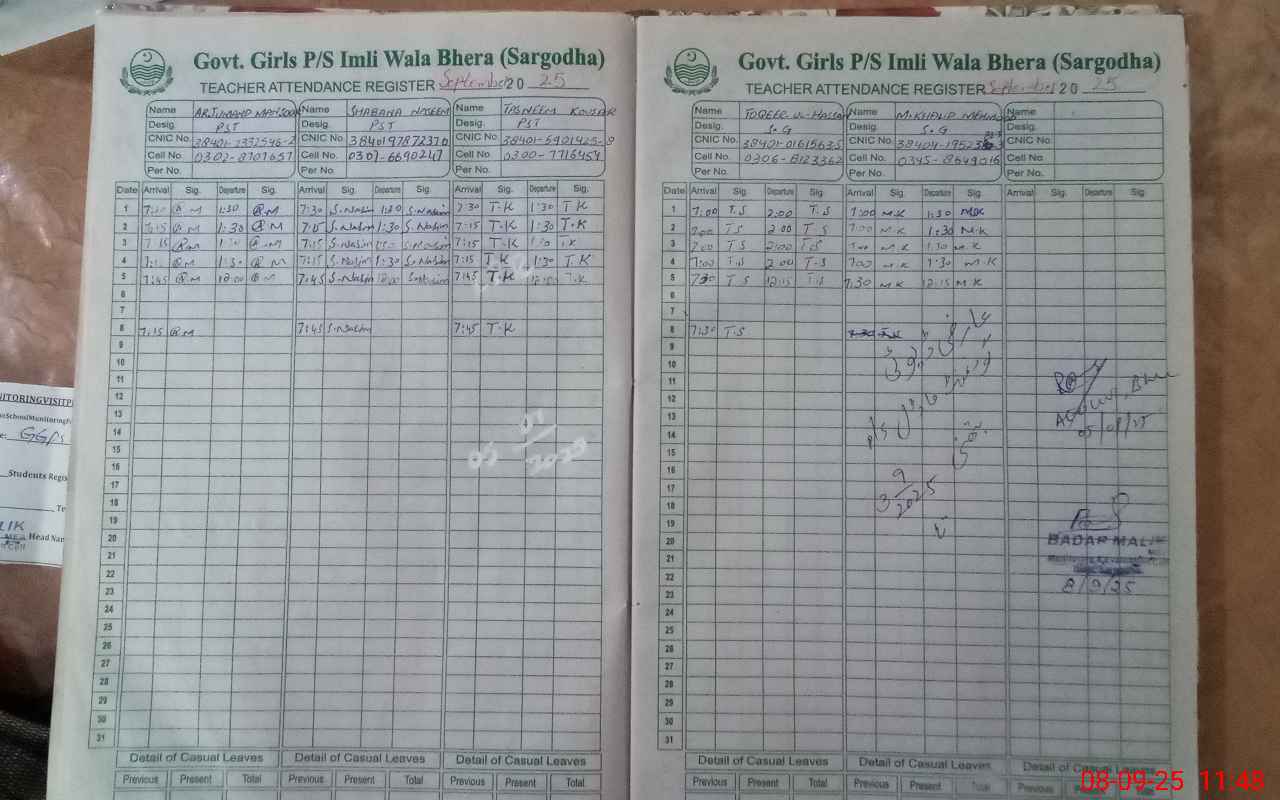 Govt. Girls P/S Imli Wala Bhera (Sargodha)
TEACHER ATTENDANCE REGISTER September 20 25
Name ARJUMAND Name SHABANA NASEEM Name TASNEEM KOUSAR
Desig. PST Desig. PST Desig. PST
CNIC No. CNIC No. CNIC No.
Cell No. 0302-8701657 Cell No. 0307-6690247 Cell No. 0300-7716454
Per No. Per No. Per No.
Date Arrival Sig. Departure Sig. Arrival Sig. Departure Sig. Arrival Sig. Departure Sig.
1 7:30 @M 1:30 @M 7:30 S.Nasim 1:30 S.Nasim 7:30 T.K 1:30 T.K
2 7:15 @M 1:30 @M 7:15 S.Nasim 1:30 S.Nasim 7:15 T.K 1:30 T.K
3 7:15 @M 1:30 @M 7:15 S.Nasim 1:30 S.Nasim 7:15 T.K 1:30 T.K
4 7:15 @M 1:30 @M 7:15 S.Nasim 1:30 S.Nasim 7:15 T.K 1:30 T.K
5 7:45 @M 12:00 @M 7:45 S.Nasim S.Nasim 7:45 T.K T.K
6
7
8 7:15 @M 7:45 S.Nasim 7:45 T.K
9
10
11
12
13
14
15
16
17
18
19
20
21
22
23
24
25
26
27
28
29
30
31
Detail of Casual Leaves Detail of Casual Leaves Detail of Casual Leaves
Previous Present Total Previous Present Total Previous Present Total
Govt. Girls P/S Imli Wala Bhera (Sargodha)
TEACHER ATTENDANCE REGISTER September 20 25
Name TOQEER UL HASSAN Name M.KHALID MEHMOOD Name
Desig. S.G Desig. S.G Desig.
CNIC No. 38401-0161563-5 CNIC No. CNIC No.
Cell No. 0306-8123362 Cell No. 0345-8649016 Cell No.
Per No. Per No. Per No.
Date Arrival Sig. Departure Sig. Arrival Sig. Departure Sig. Arrival Sig. Departure Sig.
1 7:00 T.S 2:00 T.S 7:00 M.K 1:30 M.K
2 7:00 T S 2:00 T S 7:00 M.K 1:30 M.K
3 7:00 T S 2:00 T.S 7:00 M.K 1:30 M.K
4 7:00 T.S 2:00 T.S 7:00 M.K 1:30 M.K
5 7:30 T S 12:15 T.S 7:30 M.K 12:15 M.K
6
7
8 7:30 T.S
9
10
11
12
13
14
15
16
17
18
19
20
21
22
23
24
25
26
27
28
29
30
31
3 9/2025
05/09/25
BADAR MALIK
8/9/25
Detail of Casual Leaves Detail of Casual Leaves Detail of Casual Leaves
Previous Present Total Previous Present Total
GGPS
Students Regis
Head Nam
08-09-25 11:48